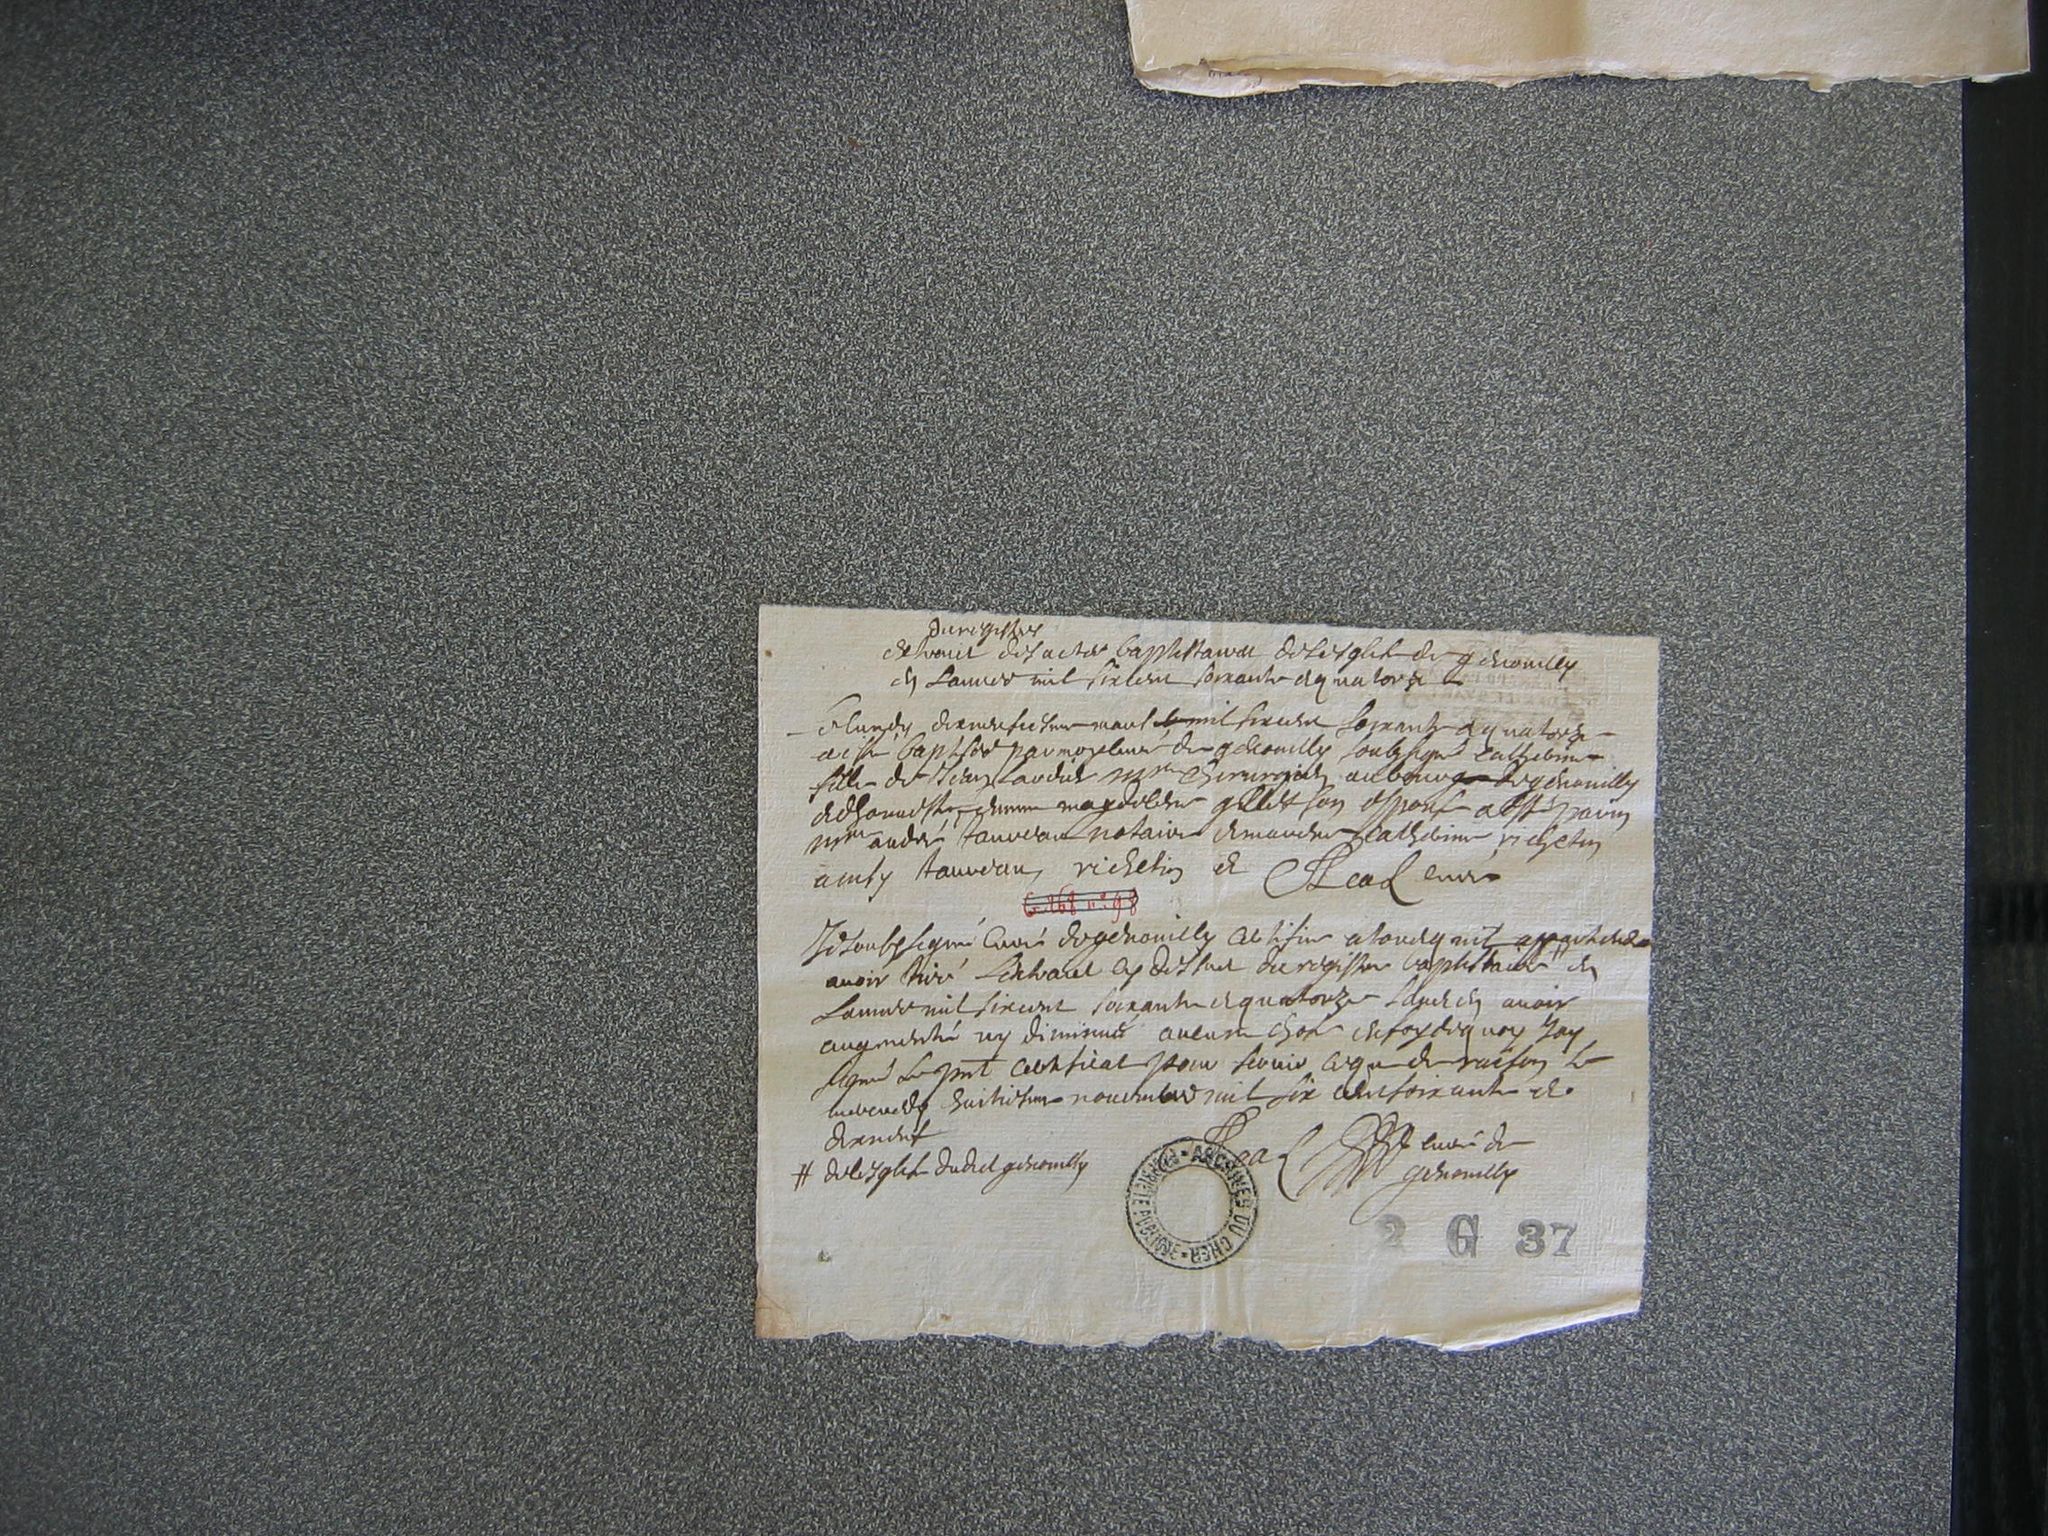 du registre
extraict des actes baptistaire de lesglise de genouilly
en lannee mil six cent soixante et quatorze
mil six cent soixante et quatorze
a esté baptisée par moy curé de genouilly soubsigné catherine
fille de Jean chirurgien au bourg de genouilly
et dhonneste femme magdelene gillet son espouse a esté parin
mre andré tauveau notaire et maraine catherine richetin
ainsy tauveau, richetin et Leal curé
G. 168 n° 98
Je soubsigné curé de genouilly certifie a tous quil appartiendra
avoir tiré lextraict cy dessus du registre baptistaire # en
lannee mil six cent soixante et quatorze sans en avoir
augmenté ny diminué aucune chose en foy de quoy Jay
signé le pnt certificat pour servir ce que de raison le
mil six cent soixante et
dixneuf
# de lesglise dudict genouilly
Leal curé de
genouilly
ARCHIVES DU CHER - PROPRIÉTÉ PUBLIQUE
2 G 37